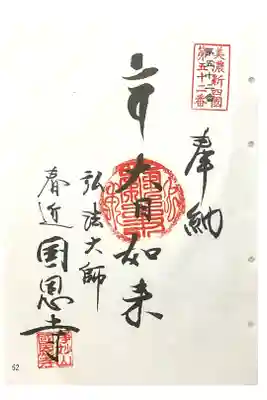 美濃新四國
第五十二番
奉納
大日如来
弘法大師
春近
国恩寺
62